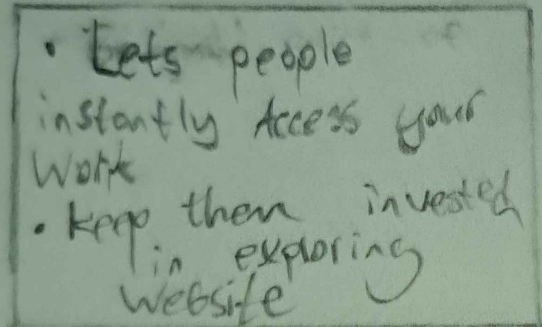 • Lets people
instantly Access your
Work
• keep them invested
in exploring
website